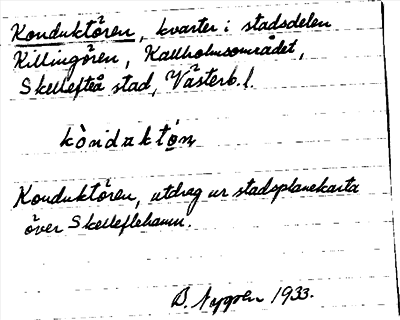 Konduktören, kvarter i stadsdelen
Killingören, Kallholmsområdet,
Skellefteå stad, Västerb.l.
kòndaktó̱n
Konduktören, utdrag ur stadsplanekarta
över Skelleftehamn.
B. 1933.